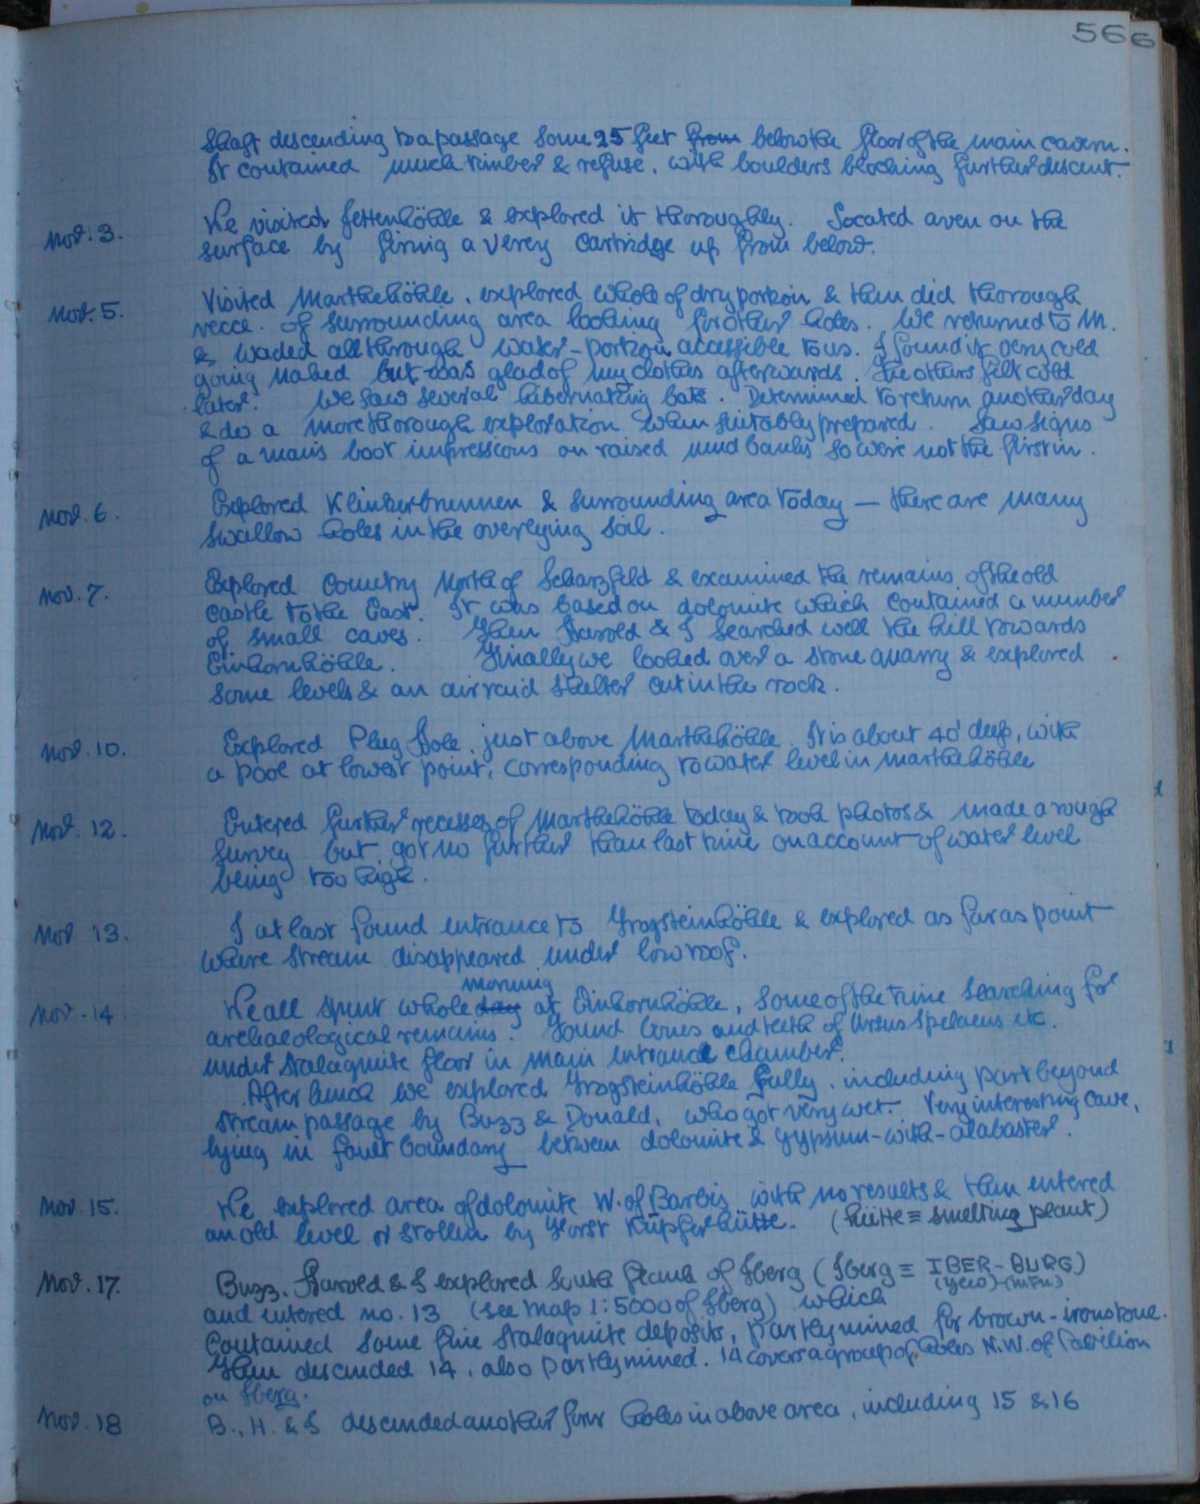 566
shaft descending to a passage some 25 feet from below the floor of the main cavern.
It contained much timber & refuse, with boulders blocking further descent.
Nov. 3. We visited Jettenhöhle & explored it thoroughly. Located aven on the
surface by firing a Verey cartridge up from below.
Nov. 5. Visited Marthehöhle, explored whole of dry portion & then did thorough
recce. of surrounding area looking for other holes. We returned to M.
& waded all through water-portion accessible to us. I found it very cold
going naked but was glad of my clothes afterwards. The others felt cold
later. We saw several hibernating bats. Determined to return another day
& do a more thorough exploration when suitably prepared. Saw signs
of a man's boot impressions on raised mud banks so were not the first in.
Nov. 6. Explored Klinkerbrunnen & surrounding area today — there are many
swallow holes in the overlying soil.
Nov. 7. Explored country North of Scharzfeld & examined the remains of the old
castle to the East. It was based on dolomite which contained a number
of small caves. Then Harold & I searched well the hill towards
Einhornhöhle. Finally we looked over a stone quarry & explored
some levels & an air raid shelter cut in the rock.
Nov. 10. Explored Plug Hole, just above Marthehöhle. It is about 40' deep, with
a pool at lowest point, corresponding to water level in Marthehöhle
Nov. 12. Entered further recesses of Marthehöhle today & took photos & made a rough
survey but got no further than last time on account of water level
being too high.
Nov 13. I at last found entrance to Trogsteinhöhle & explored as far as point
where stream disappeared under low roof.
morning
Nov. 14 We all spent whole day at Einhornhöhle, some of the time searching for
archaeological remains. Found bones and teeth of Ursus Spelaeus etc.
under stalagmite floor in main entrance chamber.
After lunch we explored Trogsteinhöhle fully, including part beyond
stream passage by Buzz & Donald, who got very wet. Very interesting cave,
lying in fault boundary between dolomite & gypsum-with-alabaster.
Nov. 15. We explored area of dolomite W. of Barbis with no results & then entered
an old level or stollen by Forst Kupferhütte. (hütte ≡ smelting plant)
Nov. 17. Buzz, Harold & I explored South flank of Iberg (Iberg ≡ IBER-BURG)
and entered no. 13 (see map 1:5000 of Iberg) which
contained some fine stalagmite deposits, partly mined for brown-ironstone.
Then descended 14, also partly mined. 14 covers a group of holes N.W. of Pavilion
on Iberg.
Nov. 18 B., H. & I descended another four holes in above area, including 15 & 16